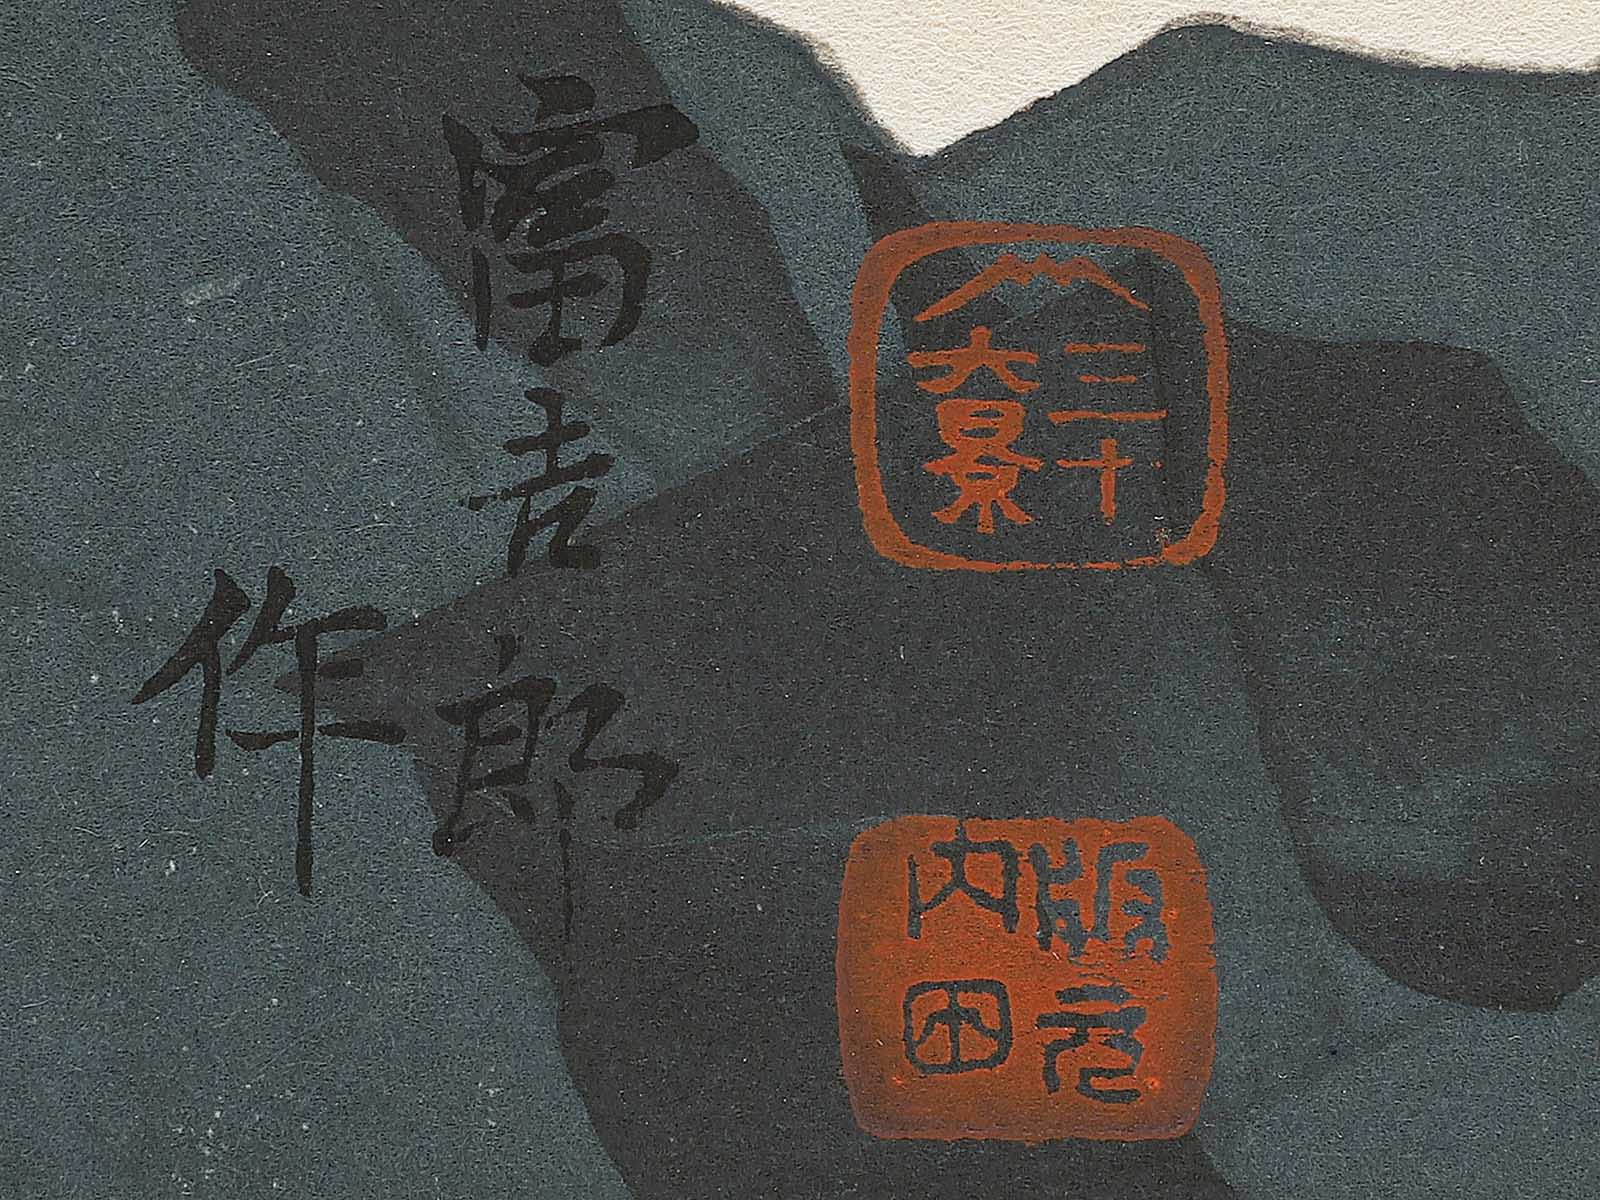 三十
六景
版元
内田
富吉郎
作